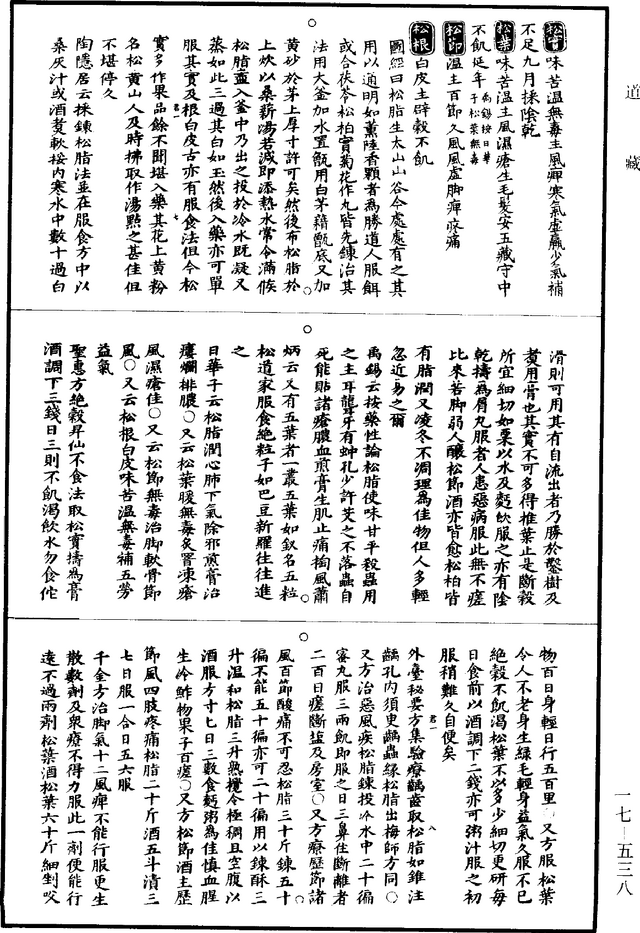 道藏
松實味苦溫無毒主風痺寒氣虛羸少氣補
不足九月採陰乾
松葉味苦溫主風濕瘡生毛髮安五藏守中
不飢延年禹錫按日華子松葉無毒
松節溫主百節久風風虛脚痺疼痛
松根白皮主辟穀不飢
圖經曰松脂生太山山谷今處處有之其
用以通明如薰陸香顆者為勝道人服餌
或合茯苓松柏實菊花作丸皆先鍊治其
法用大釜加水置甑用白茅藉甑底又加
黄砂於茅上厚寸許可矣然後布松脂於
上炊以桑薪湯若減即添熱水常令滿候
松脂盡入釜中乃出之投於冷水既凝又
蒸如此三過其白如玉然後入藥亦可單
服其實及根白皮古亦有服食法但今松
實多作果品餘不聞堪入藥其花上黄粉
名松黄山人及時拂取作湯點之甚佳但
不堪停久
陶隱居云採鍊松脂法並在服食方中以
桑灰汁或酒煑軟挼内寒水中數十過白
滑則可用其有自流出者乃勝於鑿樹及
煑用膏也其實不可多得惟葉止是斷穀
所宜細切如粟以水及麫飲服之亦有陰
乾擣為屑丸服者人患惡病服此無不瘥
比來苦脚弱人釀松節酒亦皆愈松柏皆
有脂潤又凌冬不凋理為佳物但人多輕
忽近易之爾
禹錫云按藥性論松脂使味甘平殺蟲用
之主耳聾牙有蚛孔少許咬之不落蟲自
死能貼諸瘡膿血煎膏生肌止痛搊風蕭
炳云又有五葉者一叢五葉如釵名五粒
松道家服食絶粒子如巴豆新羅往往進
之
日華子云松脂潤心肺下氣除邪煎膏治
瘻爛排膿○又云松葉暖無毒炙罯凍瘡
風濕瘡佳○又云松節無毒治脚軟骨節
風○又云松根白皮味苦溫無毒補五勞
益氣
聖惠方絶穀昇仙不食法取松實擣為膏
酒調下三錢日三則不飢渴飲水勿食佗
物百日身輕日行五百里○又方服松葉
令人不老身生綠毛輕身益氣久服不已
絶穀不飢渴松葉不以多少細切更研每
日食前以酒調下二錢亦可粥汁服之初
服稍難久自便矣
外臺秘要方集驗療齲齒取松脂如錐注
齲孔内須更齲蟲緣松脂出梅師方同○
又方治惡風疾松脂鍊投冷水中二十徧
蜜丸服二兩飢即服之日三鼻住斷離者
二百日瘥斷塩及房室○又方療歷節諸
風百節酸痛不可忍松脂三十斤鍊五十
徧不能五十徧亦可二十徧用以鍊酥三
升溫和松脂三升熟攪令極稠旦空腹以
酒服方寸七日三數食麫粥為佳慎血腥
生冷鮓物果子百瘥○又方松節酒主歷
節風四肢疼痛松脂二十斤酒五斗漬三
七日服一合日五六服
千金方治脚氣十二風痺不能行服更生
散數劑及衆療不得力服此一劑便能行
遠不過兩劑松葉酒松葉六十斤細剉㕮
一七—五三八